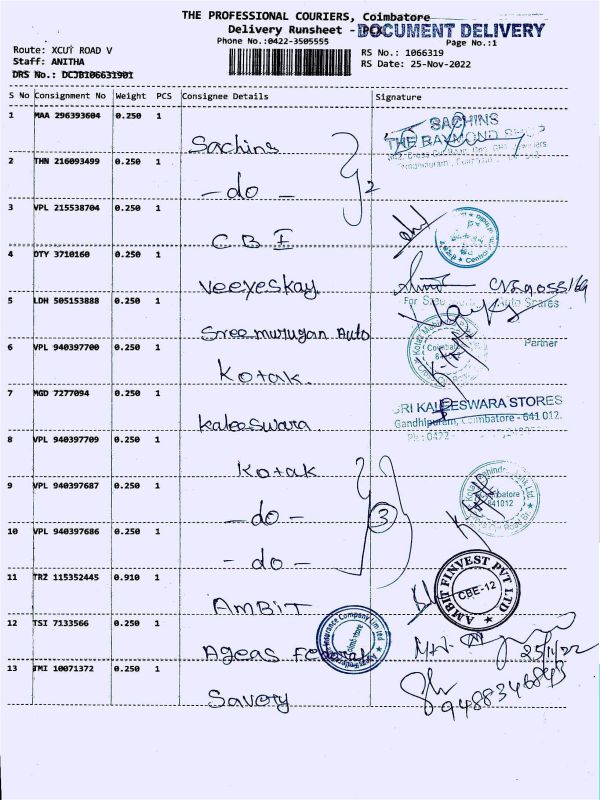 THE PROFESSIONAL COURIERS, Coimbatore
Delivery Runsheet - DOX
DOCUMENT DELIVERY
Phone No.:0422-3505555
Page No.:1
Route: XCUT ROAD V
Staff: ANITHA
DRS No.: DCJB106631901
RS No.: 1066319
RS Date: 25-Nov-2022
S No Consignment No Weight PCS Consignee Details Signature
1 MAA 296393604 0.250 1 Sachins
SACHINS
THE RAYMOND SHOP
2 THN 216093499 0.250 1 - do - 2
3 VPL 215538704 0.250 1 CBI
4 DTY 3710160 0.250 1 Veeyeskay
5 LDH 505153888 0.250 1 Sree murugan Auto
For Sree Auto Spares
Partner
6 VPL 940397700 0.250 1 Kotak
7 MGD 7277094 0.250 1 Kaleeswara
SRI KALEESWARA STORES
Gandhipuram, Coimbatore - 641 012.
Ph : 0422 -
8 VPL 940397709 0.250 1 Kotak
9 VPL 940397687 0.250 1 - do - 3
Coimbatore
641012
10 VPL 940397686 0.250 1 - do -
11 TRZ 115352445 0.910 1 AMBIT
AMBIT FINVEST PVT LTD
CBE-12
12 TSI 7133566 0.250 1 Ageas Federal
25/11/22
13 TMI 10071372 0.250 1 Savory
9488346843